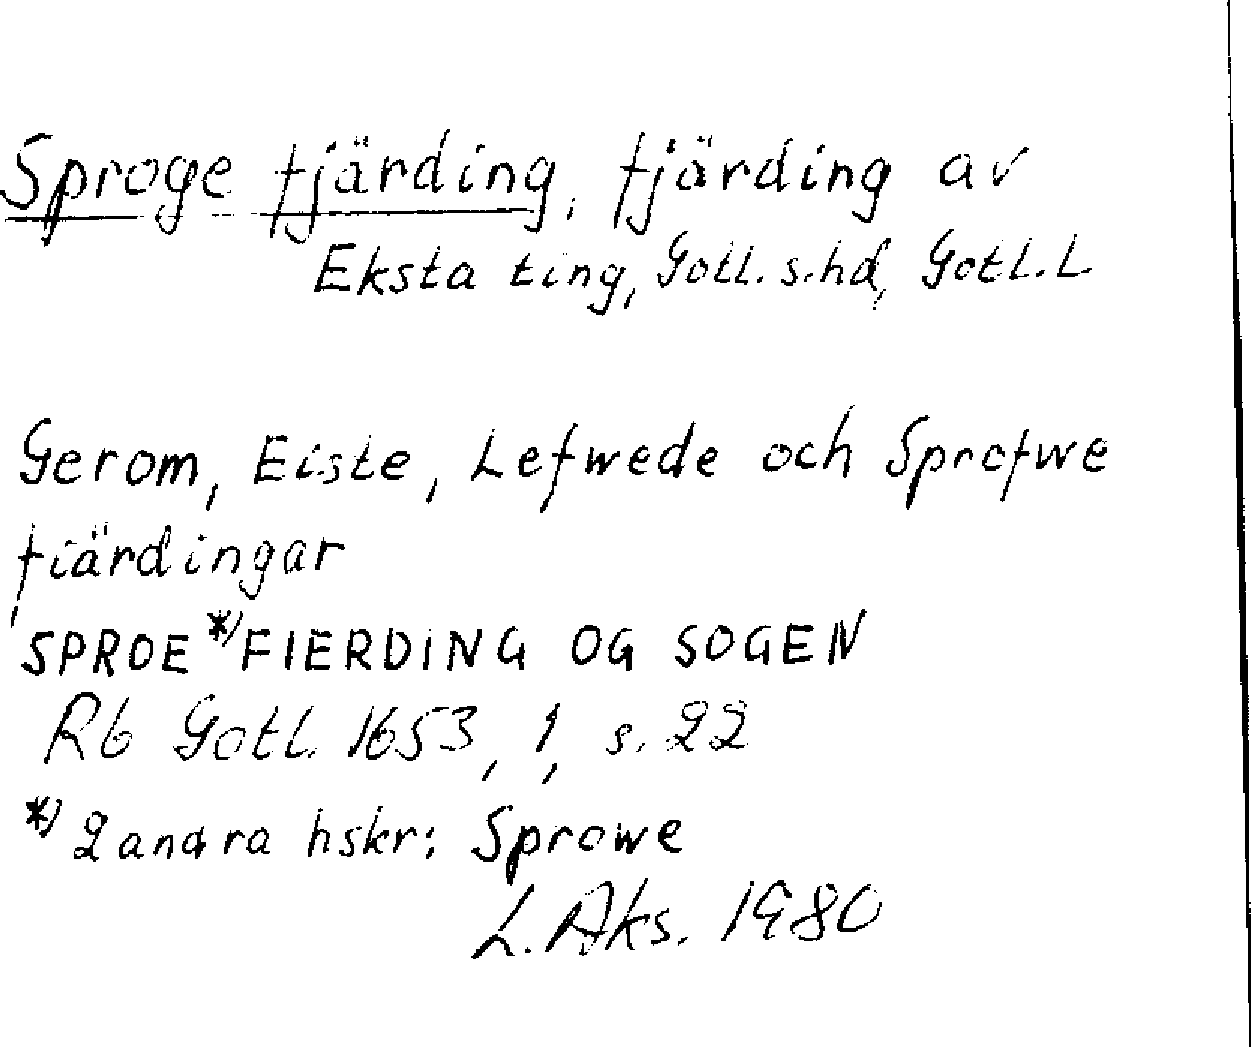 Sproge fjärding, fjärding av
Eksta ting, Gotl. s. hd, Gotl. L.
Gerom, Eiste, Lefwede och Sprofwe
fiärdingar
SPROE *) FIERDING OG SOGEN
Rb Gotl. 1653, 1, s. 22
*) 2 andra hskr: Sprowe
L. Aks. 1980